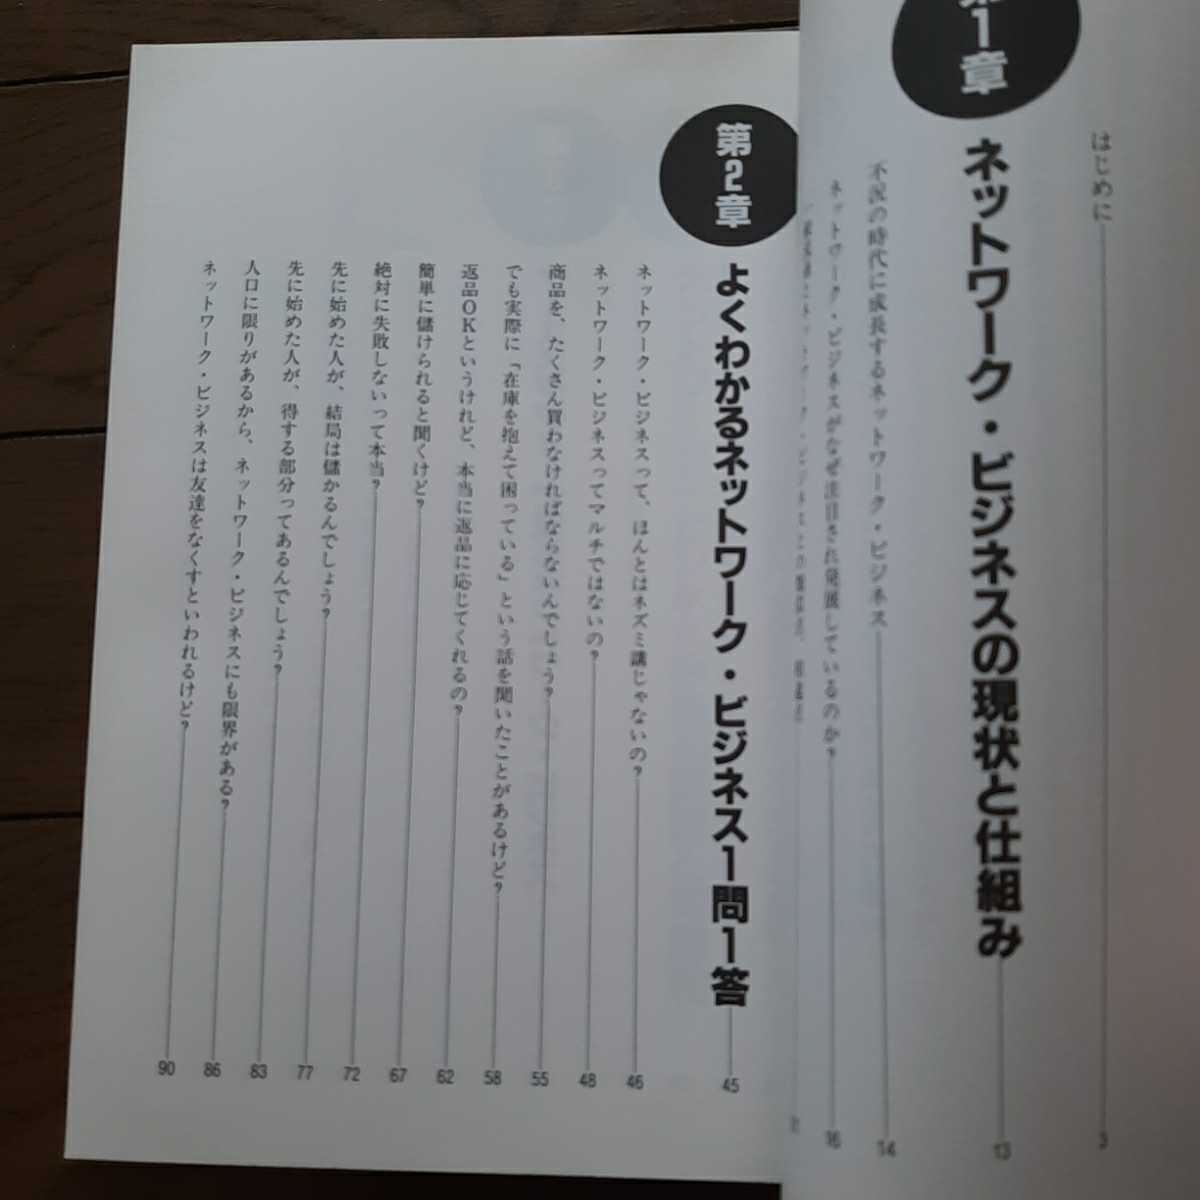 はじめに 3
第1章
ネットワーク・ビジネスの現状と仕組み 13
不況の時代に成長するネットワーク・ビジネス 14
ネットワーク・ビジネスがなぜ注目され発展しているのか? 16
第2章
よくわかるネットワーク・ビジネス1問1答 45
ネットワーク・ビジネスって、ほんとはネズミ講じゃないの? 46
ネットワーク・ビジネスってマルチではないの? 48
商品を、たくさん買わなければならないんでしょう? 55
でも実際に「在庫を抱えて困っている」という話を聞いたことがあるけど? 58
返品OKというけれど、本当に返品に応じてくれるの? 62
簡単に儲けられると聞くけど? 67
絶対に失敗しないって本当? 72
先に始めた人が、結局は儲かるんでしょう? 77
先に始めた人が、得する部分ってあるんでしょう? 83
人口に限りがあるから、ネットワーク・ビジネスにも限界がある? 86
ネットワーク・ビジネスは友達をなくすといわれるけど? 90